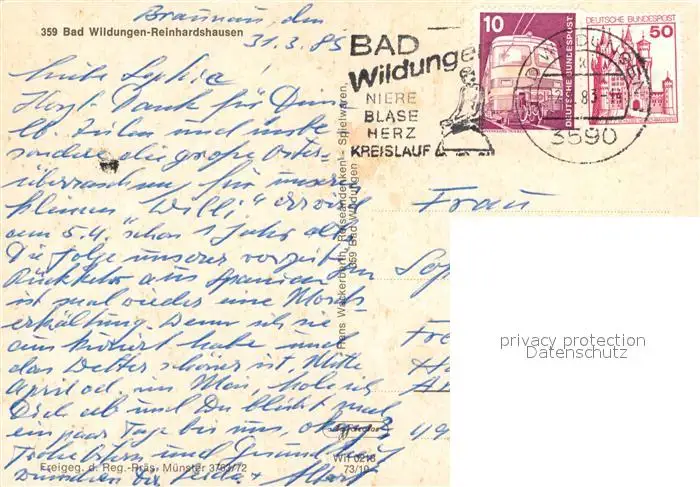 359 Bad Wildungen-Reinhardshausen
Braunau, den
31.3.85
Liebe Sophie
Herzl. Dank für Deine
lb. Zeilen und insbe
sondere die große Oster-
überraschung für unseren
kleinen "Willi", er wird
am 5.4. schon 1 Jahr alt.
Die Folge unserer vorzeitigen
Rückkehr aus Spanien
ist mal wieder eine Mords
erkältung. Wenn ich sie
aus kuriert habe und
das Wetter schöner ist, Mitte
April od. im Mai, hole ich
Dich ab und Du bleibst mal
ein paar Tage bei uns, okay?
Frohe Ostern und Gesundheit
wünschen Dir
BAD
Wildungen
NIERE
BLASE
HERZ
KREISLAUF
10
DEUTSCHE BUNDESPOST
DEUTSCHE BUNDESPOST
50
3590
Frau
Hans Wackerbarth, Reiseandenken - Spielwaren,
359 Bad Wildungen
privacy protection
Datenschutz
Freigeg. d. Reg.-Präs. Münster 3763/72
Wif 0218
73/10